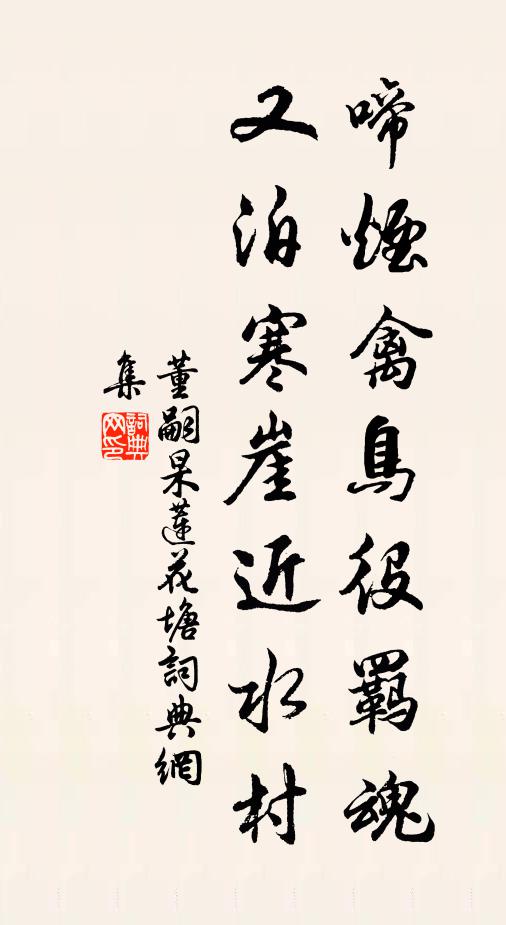 啼煙禽鳥役羈魂
又泊寒崖近水村
董嗣杲蓮花塘詞典網
集
詞典網印